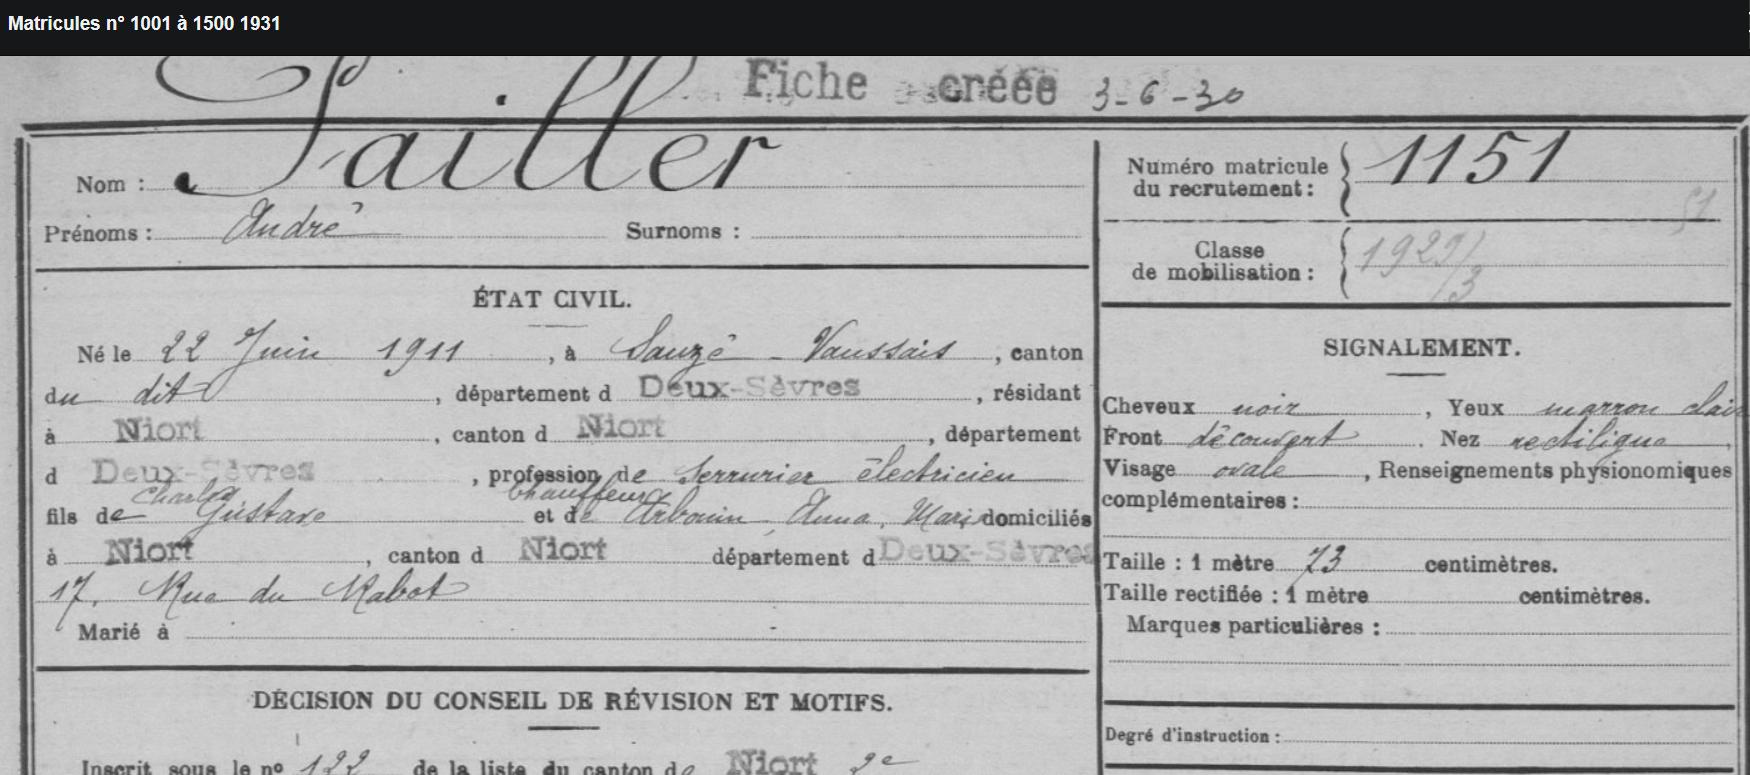 Matricules n° 1001 à 1500 1931
Fiche créée 3-6-30
Nom :
Prénoms : André Surnoms :
Numéro matricule du recrutement : 1151
51
Classe de mobilisation : 1929/3
ÉTAT CIVIL.
Né le 22 Juin 1911, à Sauzé-Vaussais, canton
du dit, département d Deux-Sèvres, résidant
à Niort, canton d Niort, département
d Deux-Sèvres, profession de Serrurier électricien
Chauffeur
fils de Charles Gustave et de Arbouin Anna, Marie domiciliés
à Niort, canton d Niort département d Deux-Sèvres
17, Rue du Rabot
Marié à
SIGNALEMENT.
Cheveux noir, Yeux marron clair
Front découvert. Nez rectiligne,
Visage ovale, Renseignements physionomiques
complémentaires :
Taille : 1 mètre 73 centimètres.
Taille rectifiée : 1 mètre centimètres.
Marques particulières :
Degré d'instruction :
DÉCISION DU CONSEIL DE RÉVISION ET MOTIFS.
Inscrit sous le n° 122 de la liste du canton de Niort 2e